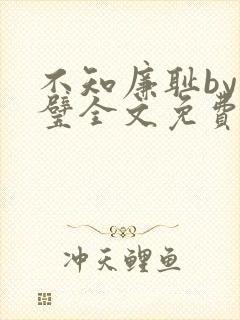 不知廉耻by
璧全文免费
冲天鲤鱼